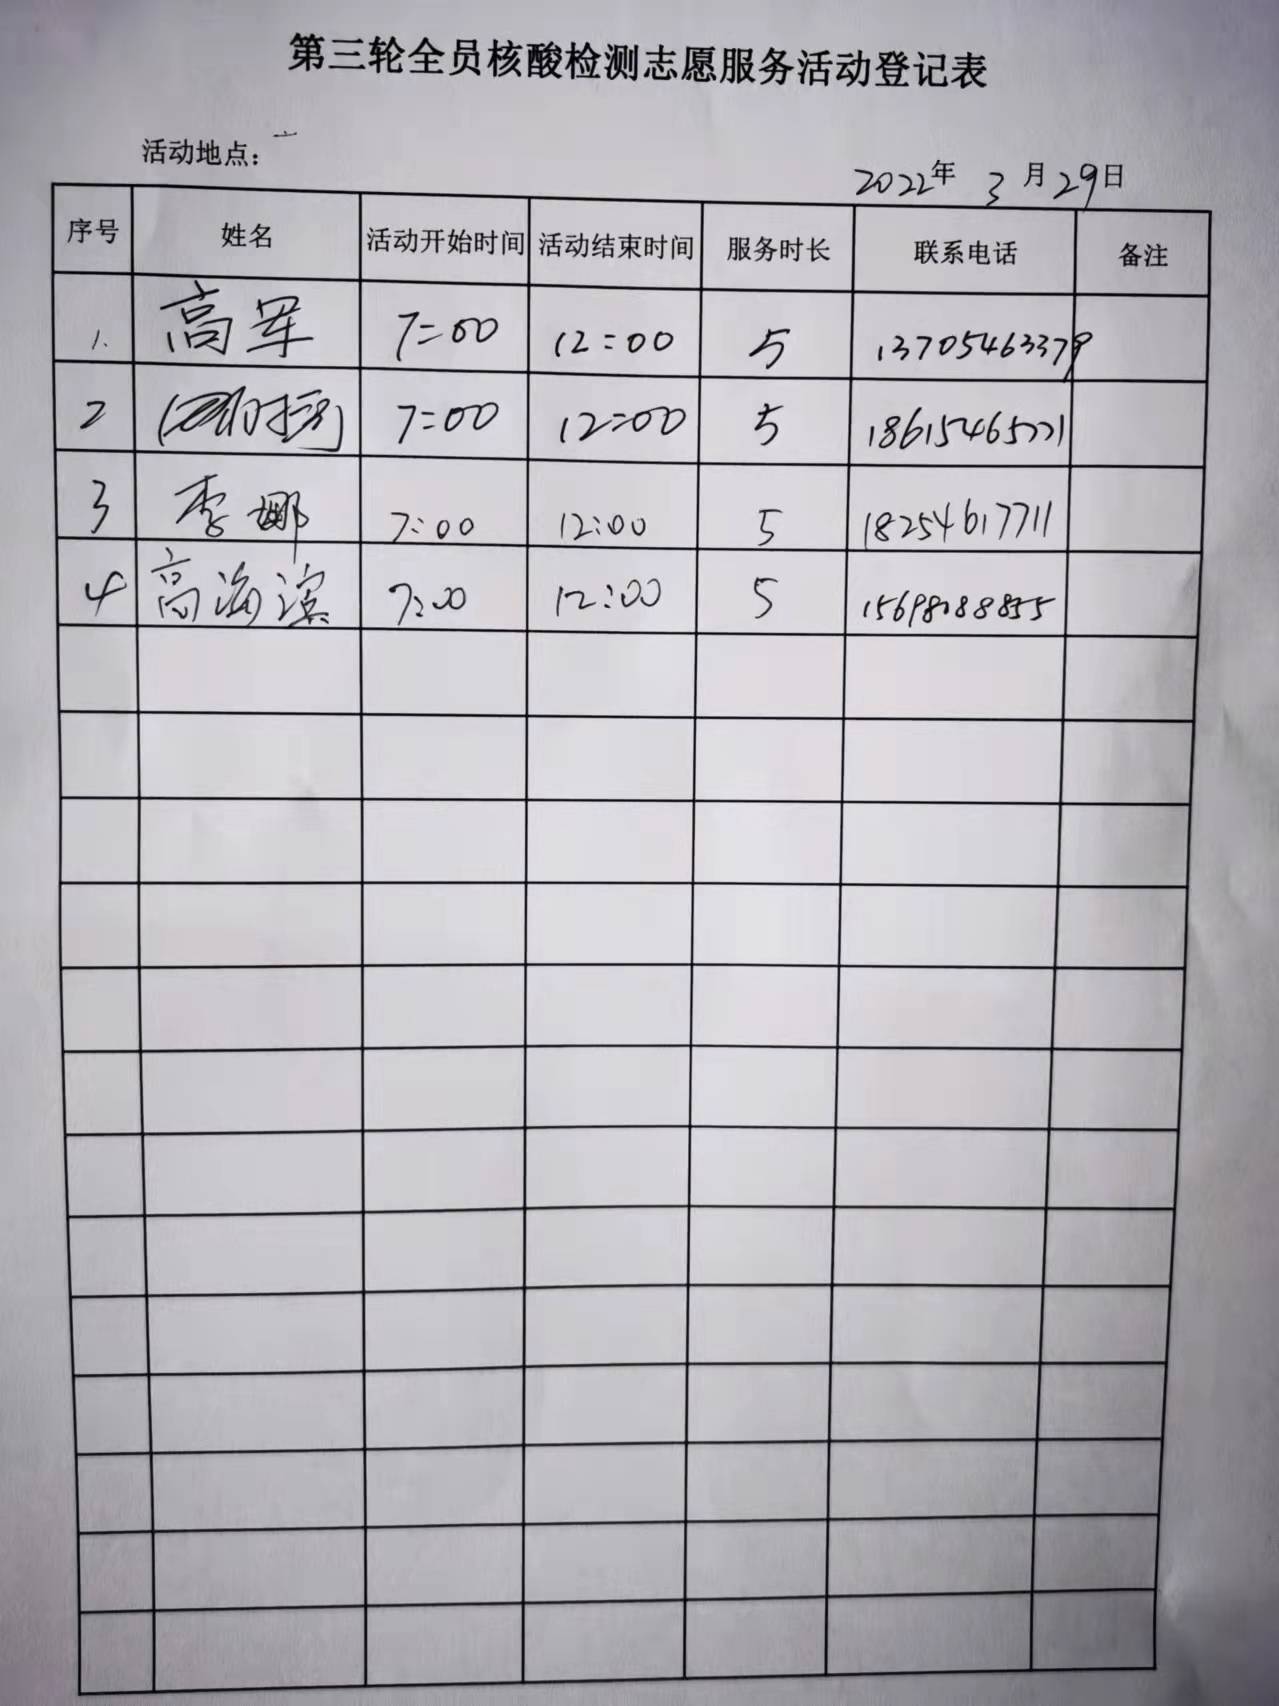 第三轮全员核酸检测志愿服务活动登记表
活动地点：
2022年 3 月 29日
序号 姓名 活动开始时间 活动结束时间 服务时长 联系电话 备注
1. 高军 7:00 12:00 5 13705463379
2 7:00 12:00 5 18615465221
3 李娜 7:00 12:00 5 18254617711
4 高海滨 7:00 12:00 5 15698088855